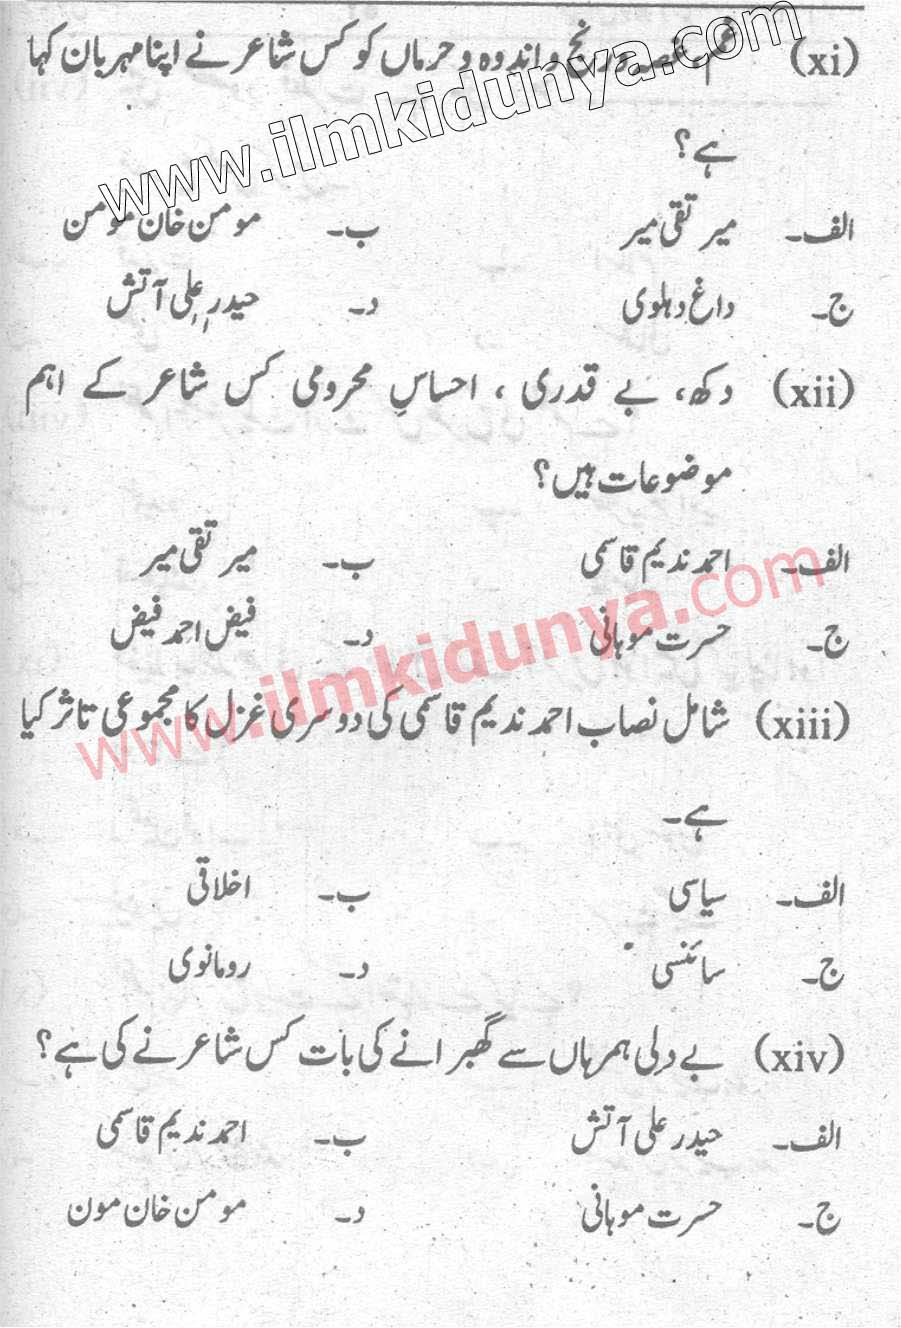 (xi) غم و غصہ و رنج و اندوہ و حرماں کو کس شاعر نے اپنا مہربان کہا
ہے؟
الف۔ میر تقی میر ب۔ مومن خان مومن
ج۔ داغ دہلوی د۔ حیدر علی آتش
(xii) دکھ، بے قدری ، احساسِ محرومی کس شاعر کے اہم
موضوعات ہیں؟
الف۔ احمد ندیم قاسمی ب۔ میر تقی میر
ج۔ حسرت موہانی د۔ فیض احمد فیض
(xiii) شامل نصاب احمد ندیم قاسمی کی دوسری غزل کا مجموعی تاثر کیا
ہے۔
الف۔ سیاسی ب۔ اخلاقی
ج۔ سائنسی د۔ رومانوی
(xiv) بے دلی ہمرہاں سے گھبرانے کی بات کس شاعر نے کی ہے؟
الف۔ حیدر علی آتش ب۔ احمد ندیم قاسمی
ج۔ حسرت موہانی د۔ مومن خان مون
www.ilmkidunya.com
www.ilmkidunya.com